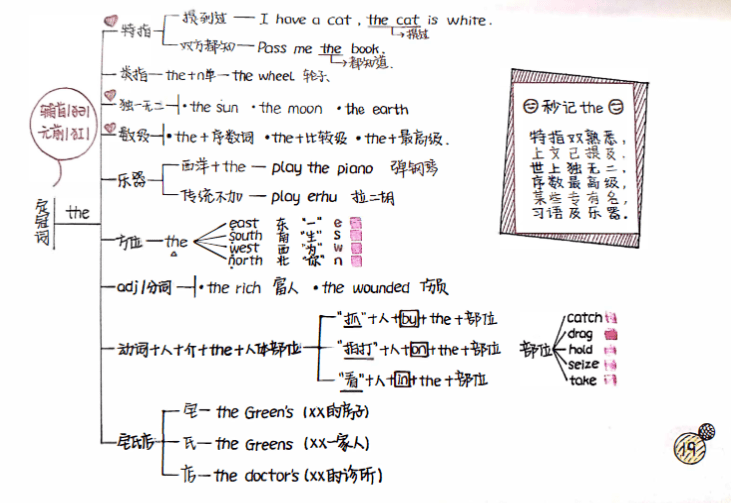 特指
提到过 — I have a cat, the cat is white.
提过
双方都知 — Pass me the book.
都知道.
类指 — the+n单 — the wheel 轮子
独一无二 • the sun • the moon • the earth
数级 • the+序数词 • the+比较级 • the+最高级.
辅前/ðə/
元前/ðI/
乐器
西洋+the — play the piano 弹钢琴
传统不加 — play erhu 拉二胡
定冠词 the
方位 — the
east 东 "一" e
south 南 "生" s
west 西 "为" w
north 北 "你" n
adj/分词 • the rich 富人 • the wounded 伤员
动词+人+介+the+人体部位
"抓"+人+by+the+部位
"拍打"+人+on+the+部位
"看"+人+in+the+部位
部位
catch
drag
hold
seize
take
宅氏店
宅 — the Green's (xx的房子)
氏 — the Greens (xx一家人)
店 — the doctor's (xx的诊所)
秒记 the
特指双熟悉,
上文已提及.
世上独无二,
序数最高级,
某些专有名,
习语及乐器.
19